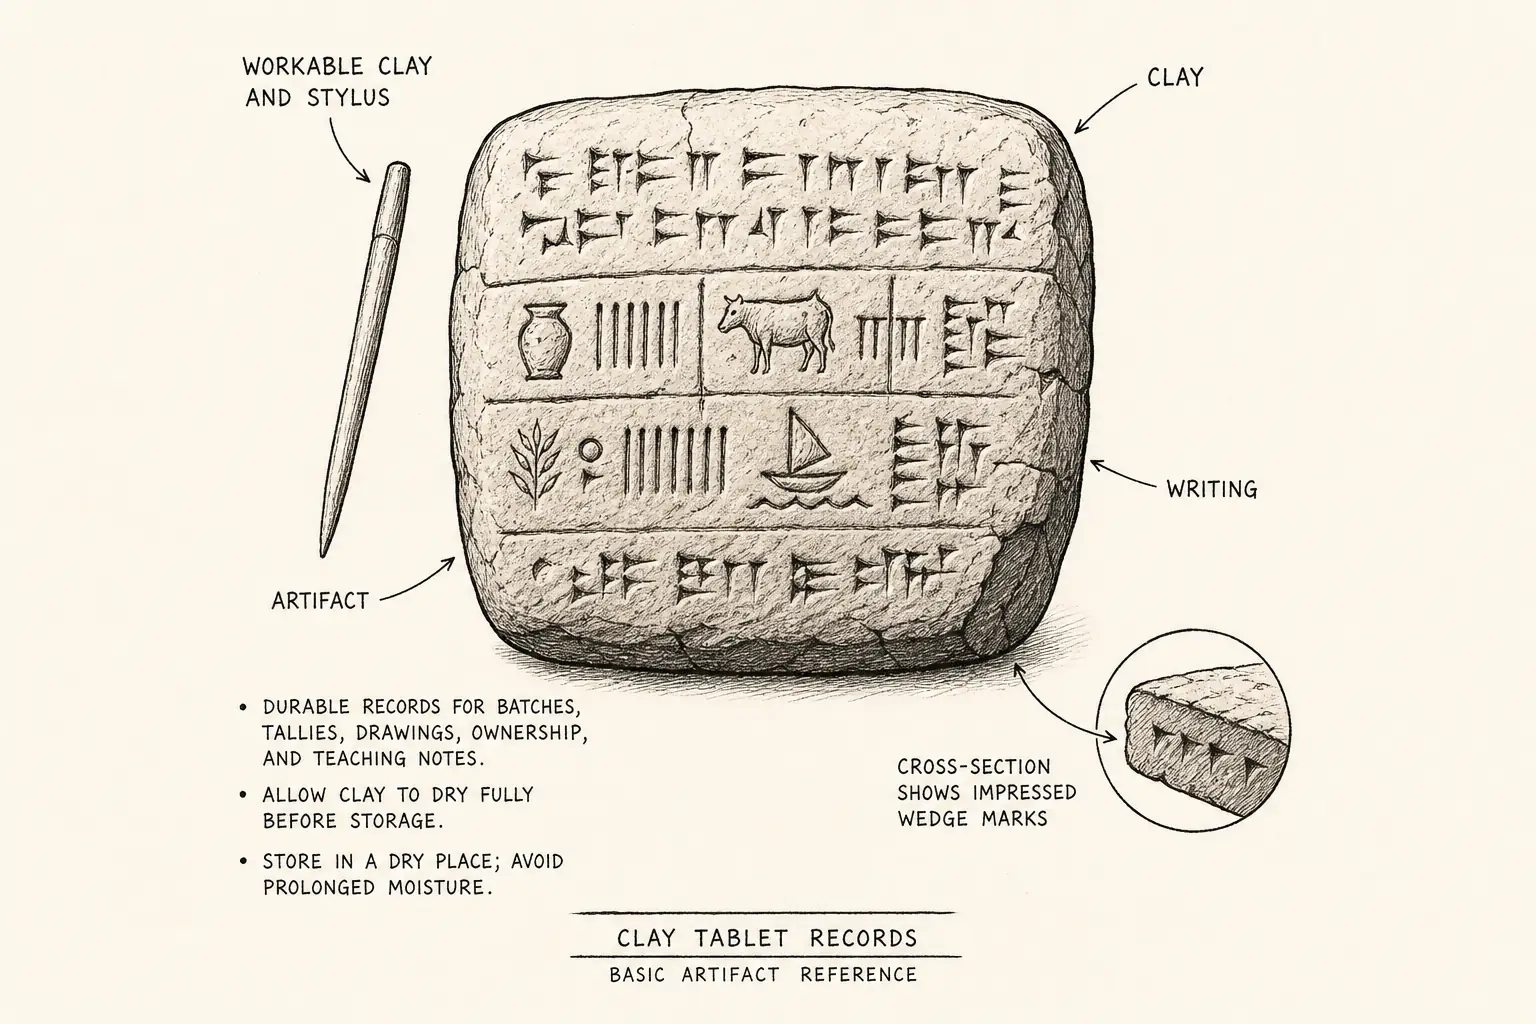 WORKABLE CLAY
AND STYLUS
CLAY
WRITING
ARTIFACT
• DURABLE RECORDS FOR BATCHES,
TALLIES, DRAWINGS, OWNERSHIP,
AND TEACHING NOTES.
• ALLOW CLAY TO DRY FULLY
BEFORE STORAGE.
• STORE IN A DRY PLACE; AVOID
PROLONGED MOISTURE.
CROSS-SECTION
SHOWS IMPRESSED
WEDGE MARKS
CLAY TABLET RECORDS
BASIC ARTIFACT REFERENCE